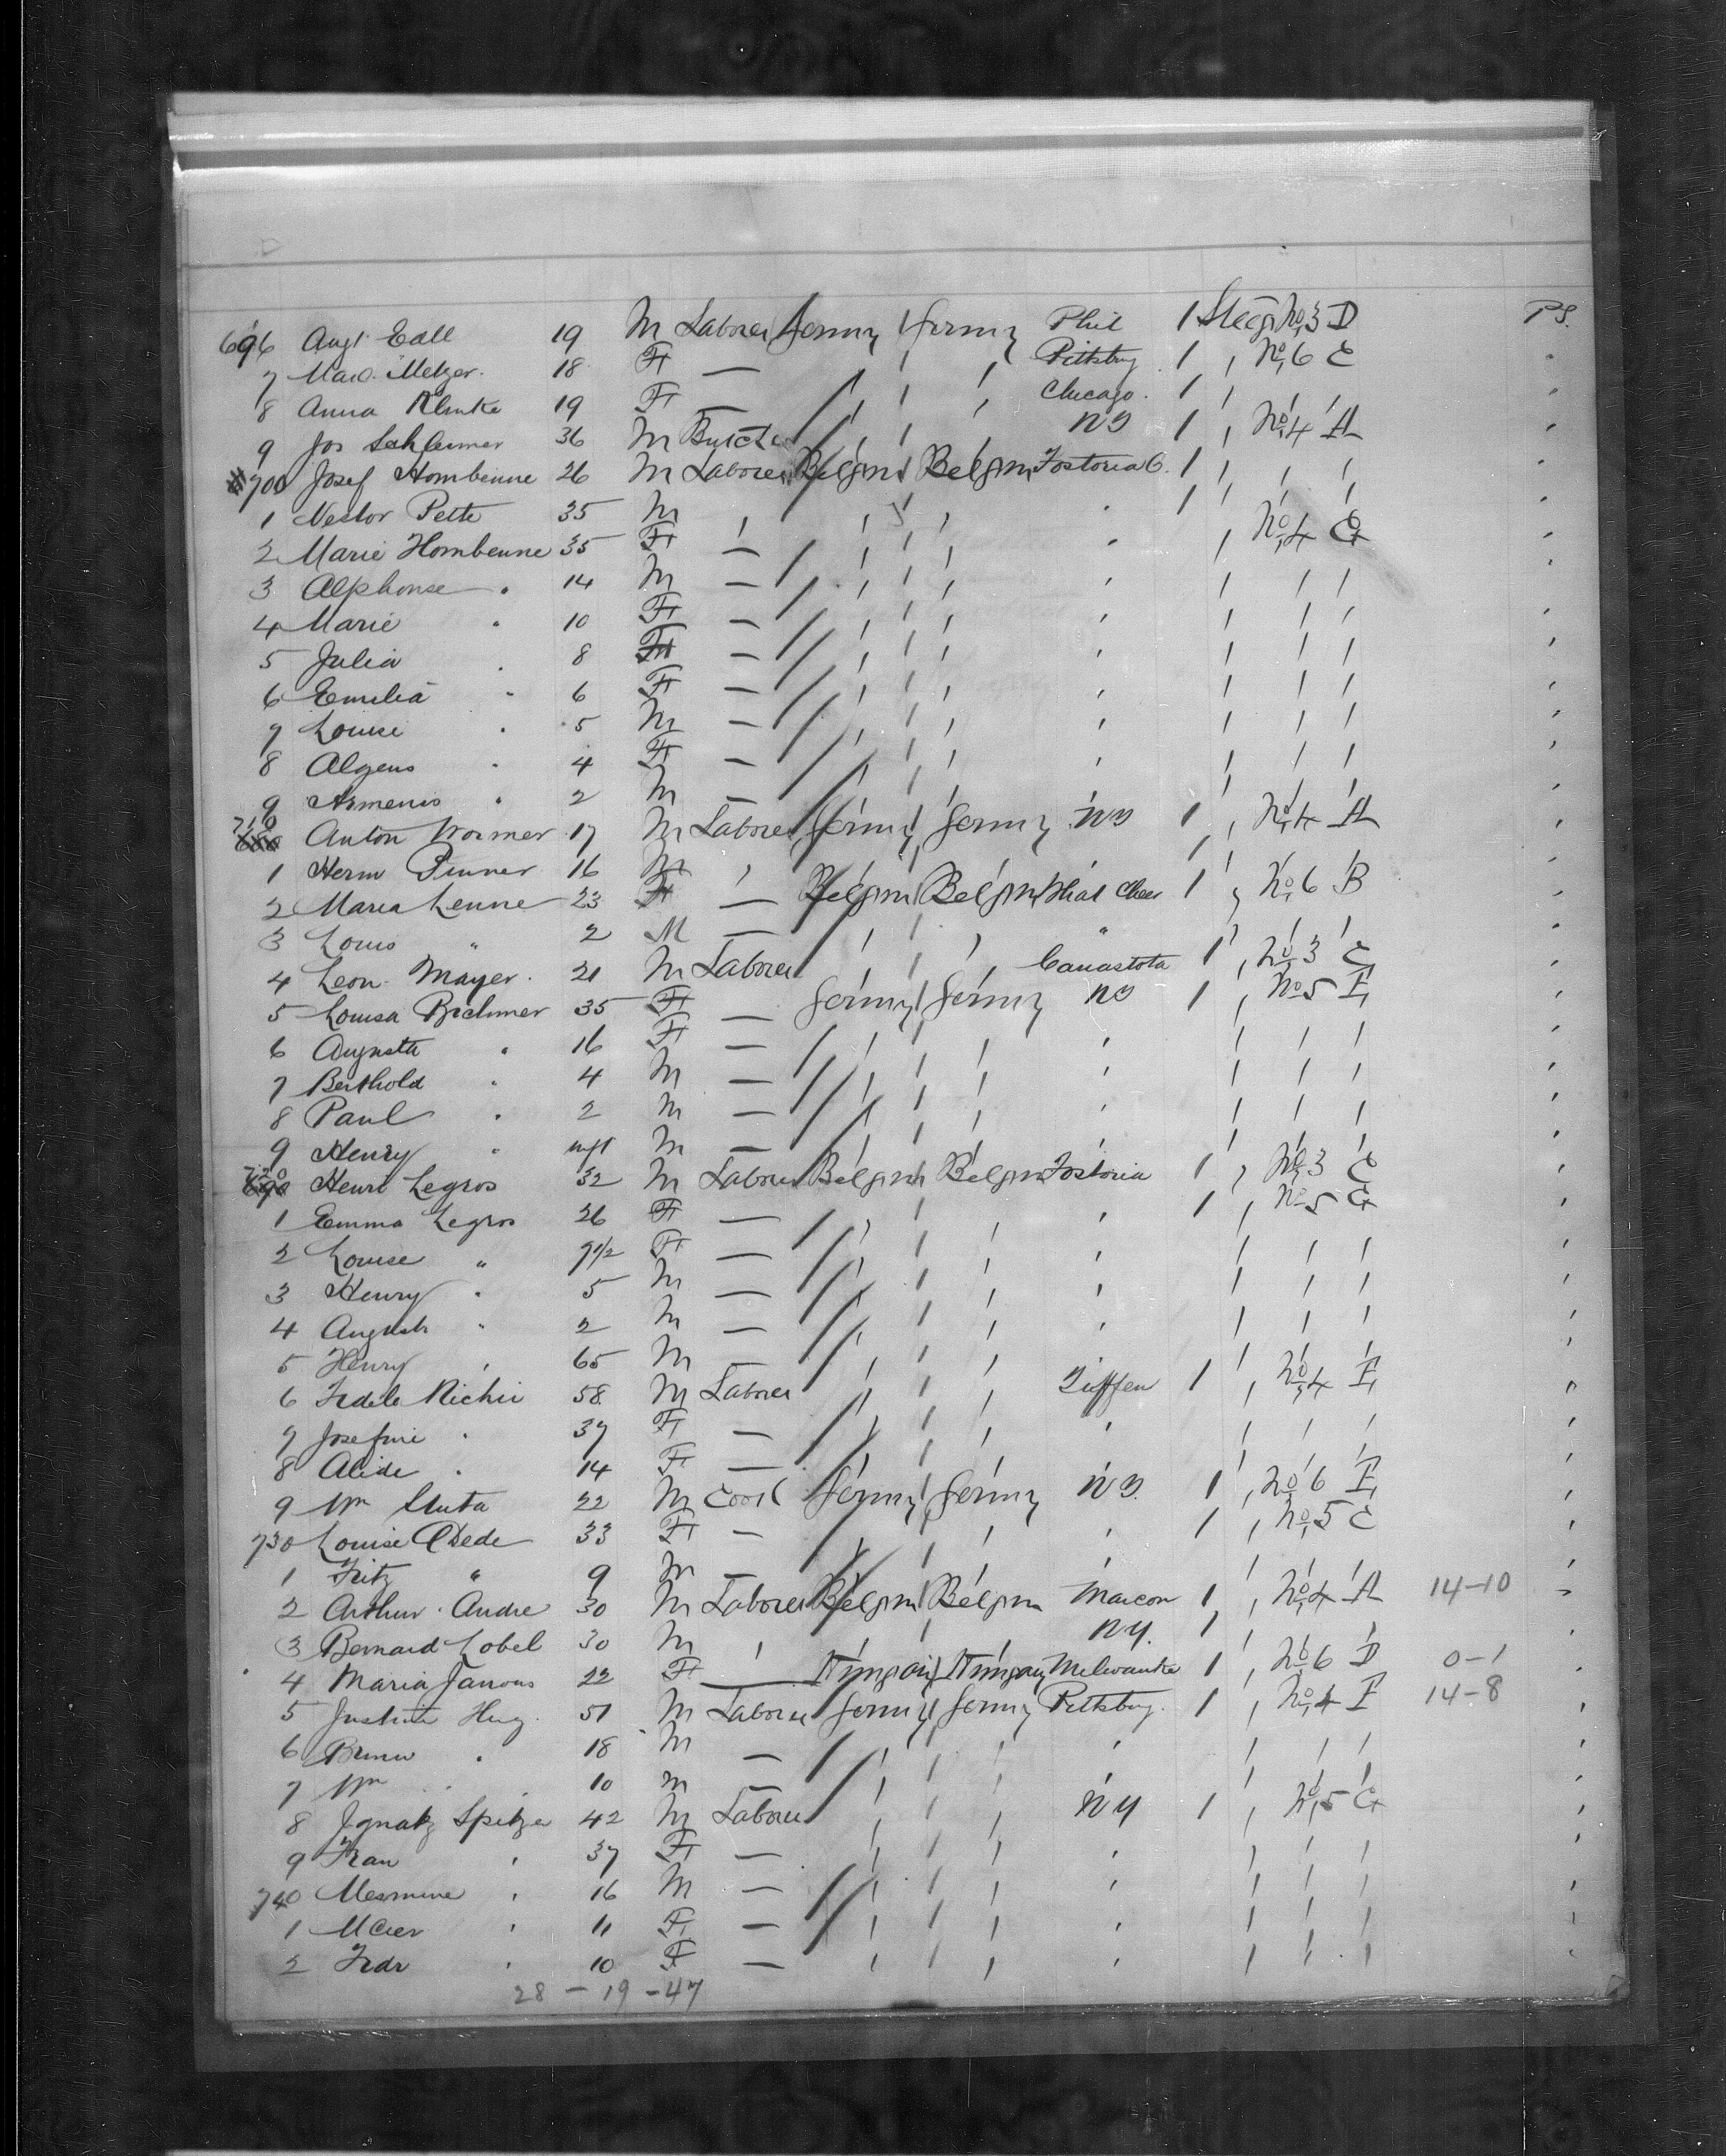 696 Augt Eall 19 M Laborer Germny Germny Phil 1 Steeg No 3 D PS.
7 Metzger 18 F — Pittsburg 1 No 6 C
8 Anna Klinke 19 F — Chicago. 1
9 Jos Schleimer 36 M Butcher NY 1 No 4 A
700 Josef Hombenne 26 M Laborer Belgium Belgium Fostoria O. 1
1 Nestor Pette 35 M 1
2 Marie Hombenne 35 F — No 4 G
3 Alphonse " 14 M —
4 Marie " 10 F —
5 Julia " 8 F —
6 Emilia " 6 F —
7 Louise " 5 M —
8 " 4 F —
9 Armenis " 2 M —
710 Anton Wormer 17 M Laborer Germny Germny NY 1 No 4 A
1 Herm Pinner 16 M 1
2 Maria Lenne 23 F — Belgium Belgium What Cheer 1 No 6 B
3 Louis " 2 M — "
4 Leon Mayer 21 M Laborer Canastota 1 No 3 C
5 Louisa Brehmer 35 F — Germny Germny NY 1 No 5 F
6 Augusta " 16 F —
7 Berthold " 4 M —
8 Paul " 2 M —
9 Henry " inft M —
720 Henri Legros 32 M Laborer Belgium Belgium Fostoria 1 No 3 C
1 Emma Legros 26 F — 1 No 5 G
2 Louise " 9 1/2 F —
3 Henry " 5 M —
4 August " 2 M —
5 Henry " 65 M —
6 Fidele Richir 58 M Laborer Tiffen 1 No 4 F
7 Josefine " 37 F —
8 Alide " 14 F —
9 Wm Stuta 22 M Cook Germny Germny NY. 1 No 6 F
730 Louise Dede 33 F — 1 No 5 C
1 Fritz " 9 M —
2 Arthur Andre 30 M Laborer Belgium Belgium Macon 1 No 4 A 14-10
3 Bernard Lobel 30 M NY. 1
4 Maria Janous 22 F — Hungary Hungary Milwauke 1 No 6 D 0-1
5 51 M Laborer Germny Germny Pittsburg. 1 No 4 F 14-8
6 Bruno " 18 M —
7 Wm " 10 M —
8 Ignatz Spitzer 42 M Laborer NY 1 No 5 G
9 Frau " 37 F —
740 " 16 M —
1 " 11 F —
2 " 10 F —
28 - 19 - 47